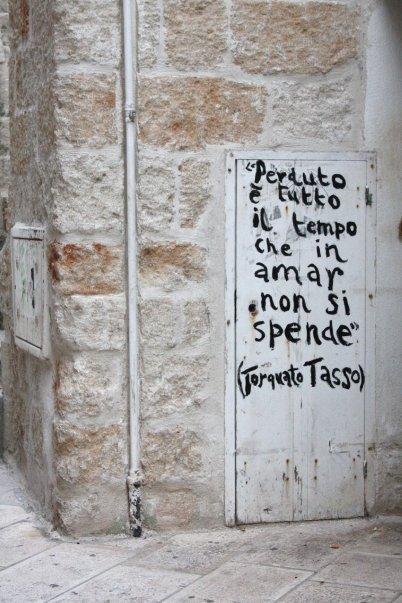 “Perduto
è tutto
il tempo
che in
amar
non si
spende”
(Torquato Tasso)